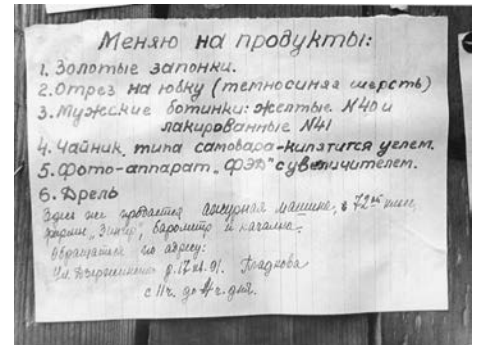 Меняю на продукты:
1. Золотые запонки.
2. Отрез на юбку (темносиняя шерсть)
3. Мужские ботинки: желтые N40 и
лакированные N41
4. Чайник типа самовара-кипятится углем.
5. Фото-аппарат „ФЭД" с увеличителем.
6. Дрель
Здесь же продается ажурная машина,
фирмы „Зингер", барометр и качалка.
Обращаться по адресу:
Ул. Дзержинского д. 17 кв. 91. Гладкова
с 11 ч. до 4 ч. дня.